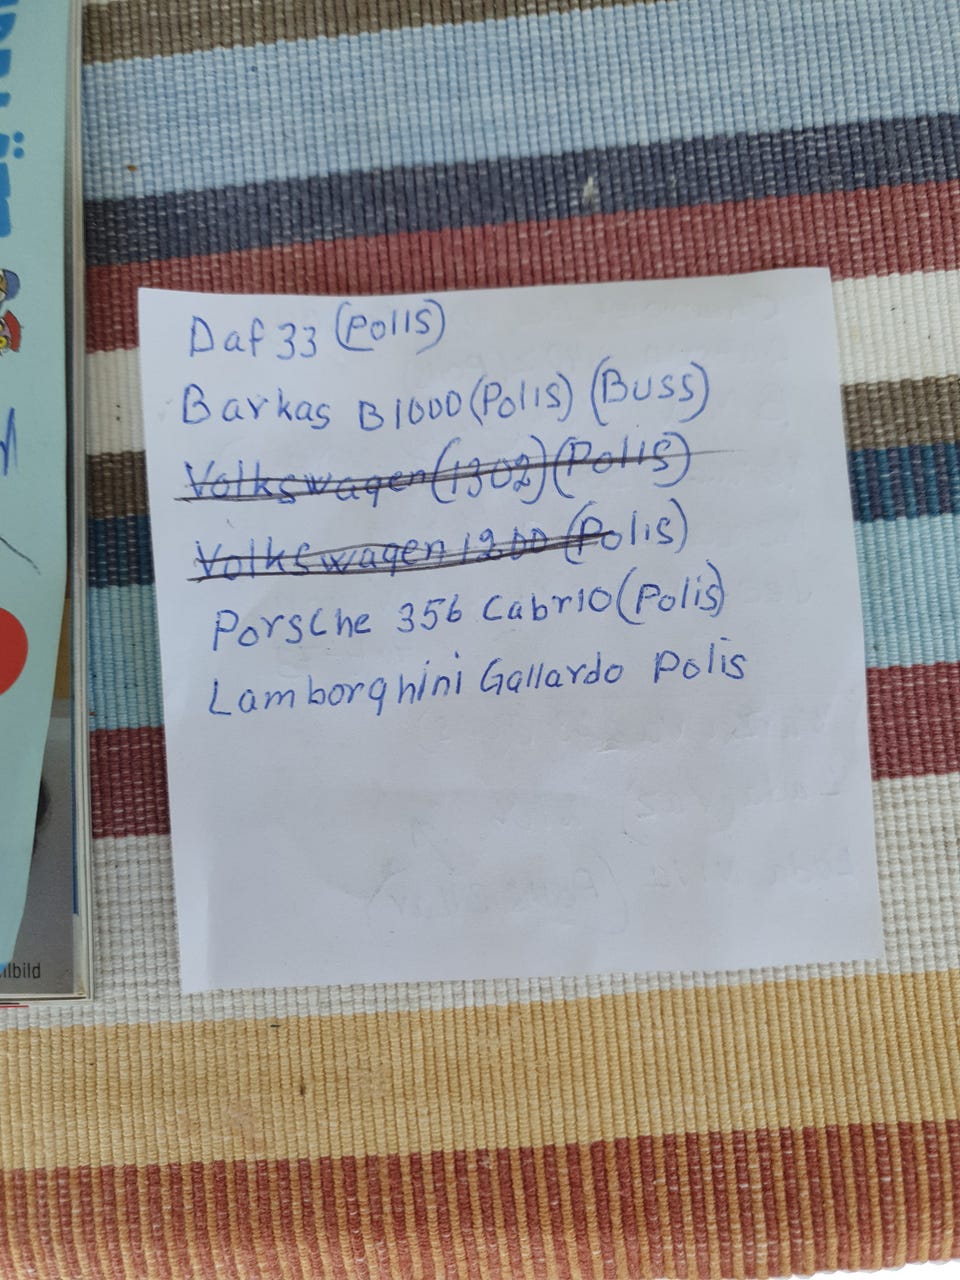 Daf 33 (Polis)
Barkas B1000 (Polis) (Buss)
Volkswagen (1302) (Polis)
Volkswagen 1200 (Polis)
Porsche 356 Cabrio (Polis)
Lamborghini Gallardo Polis
ilbild